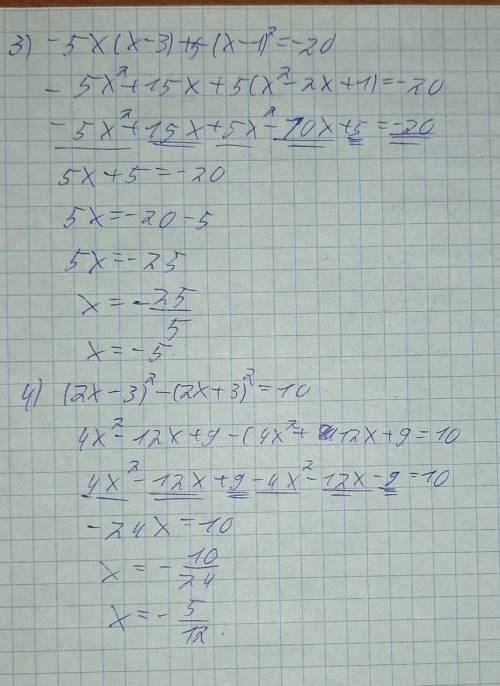 3) -5x(x-3)+5(x-1)²=-20
-5x²+15x+5(x²-2x+1)=-20
-5x²+15x+5x²-10x+5=-20
5x+5=-20
5x=-20-5
5x=-25
x=-25/5
x=-5
4) (2x-3)²-(2x+3)²=10
4x²-12x+9-(4x²+12x+9=10
4x²-12x+9-4x²-12x-9=10
-24x=10
x=-10/24
x=-5/12.